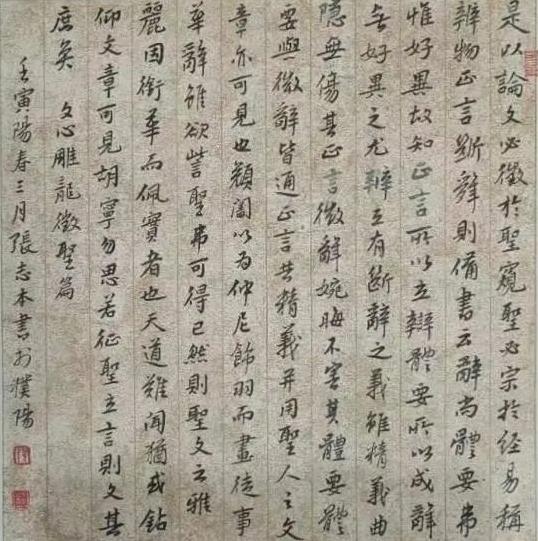 是以論文必徵於聖窺聖必宗於经易稱
辨物正言斷辭則備書云辭尚體要弗
惟好異故知正言所以立辯體要所以成辭
無好異之尤辯立有断辭之義雖精義曲
隱無傷其正言微辭婉晦不害其體要體
要與微辭皆通正言共精義并用聖人之文
章亦可見也顏闔以为仲尼飾羽而畫徒事
華辭雖欲訾聖弗可得已然則聖文之雅
麗固銜華而佩實者也天道難聞猶或鉆
仰文章可見胡寧勿思若征聖立言則文其
庶矣 文心雕龍徵聖篇
壬寅陽春三月張志本書於濮陽